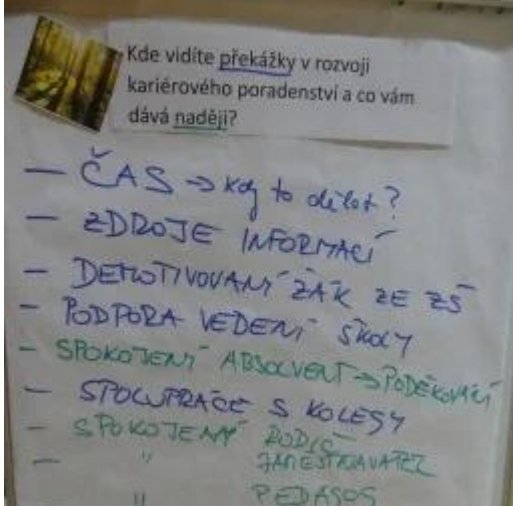 Kde vidíte překážky v rozvoji
kariérového poradenství a co vám
dává naději?
— ČAS → kdy to dělat?
— ZDROJE INFORMACÍ
— DEMOTIVOVANÝ ŽÁK ZE ZŠ
— PODPORA VEDENÍ ŠKOLY
— SPOKOJENÝ ABSOLVENT → PODĚKOVÁNÍ
— SPOLUPRÁCE S KOLEGY
— SPOKOJENÝ RODIČ
— " ZAMĚSTNAVATEL
" PEDAGOG